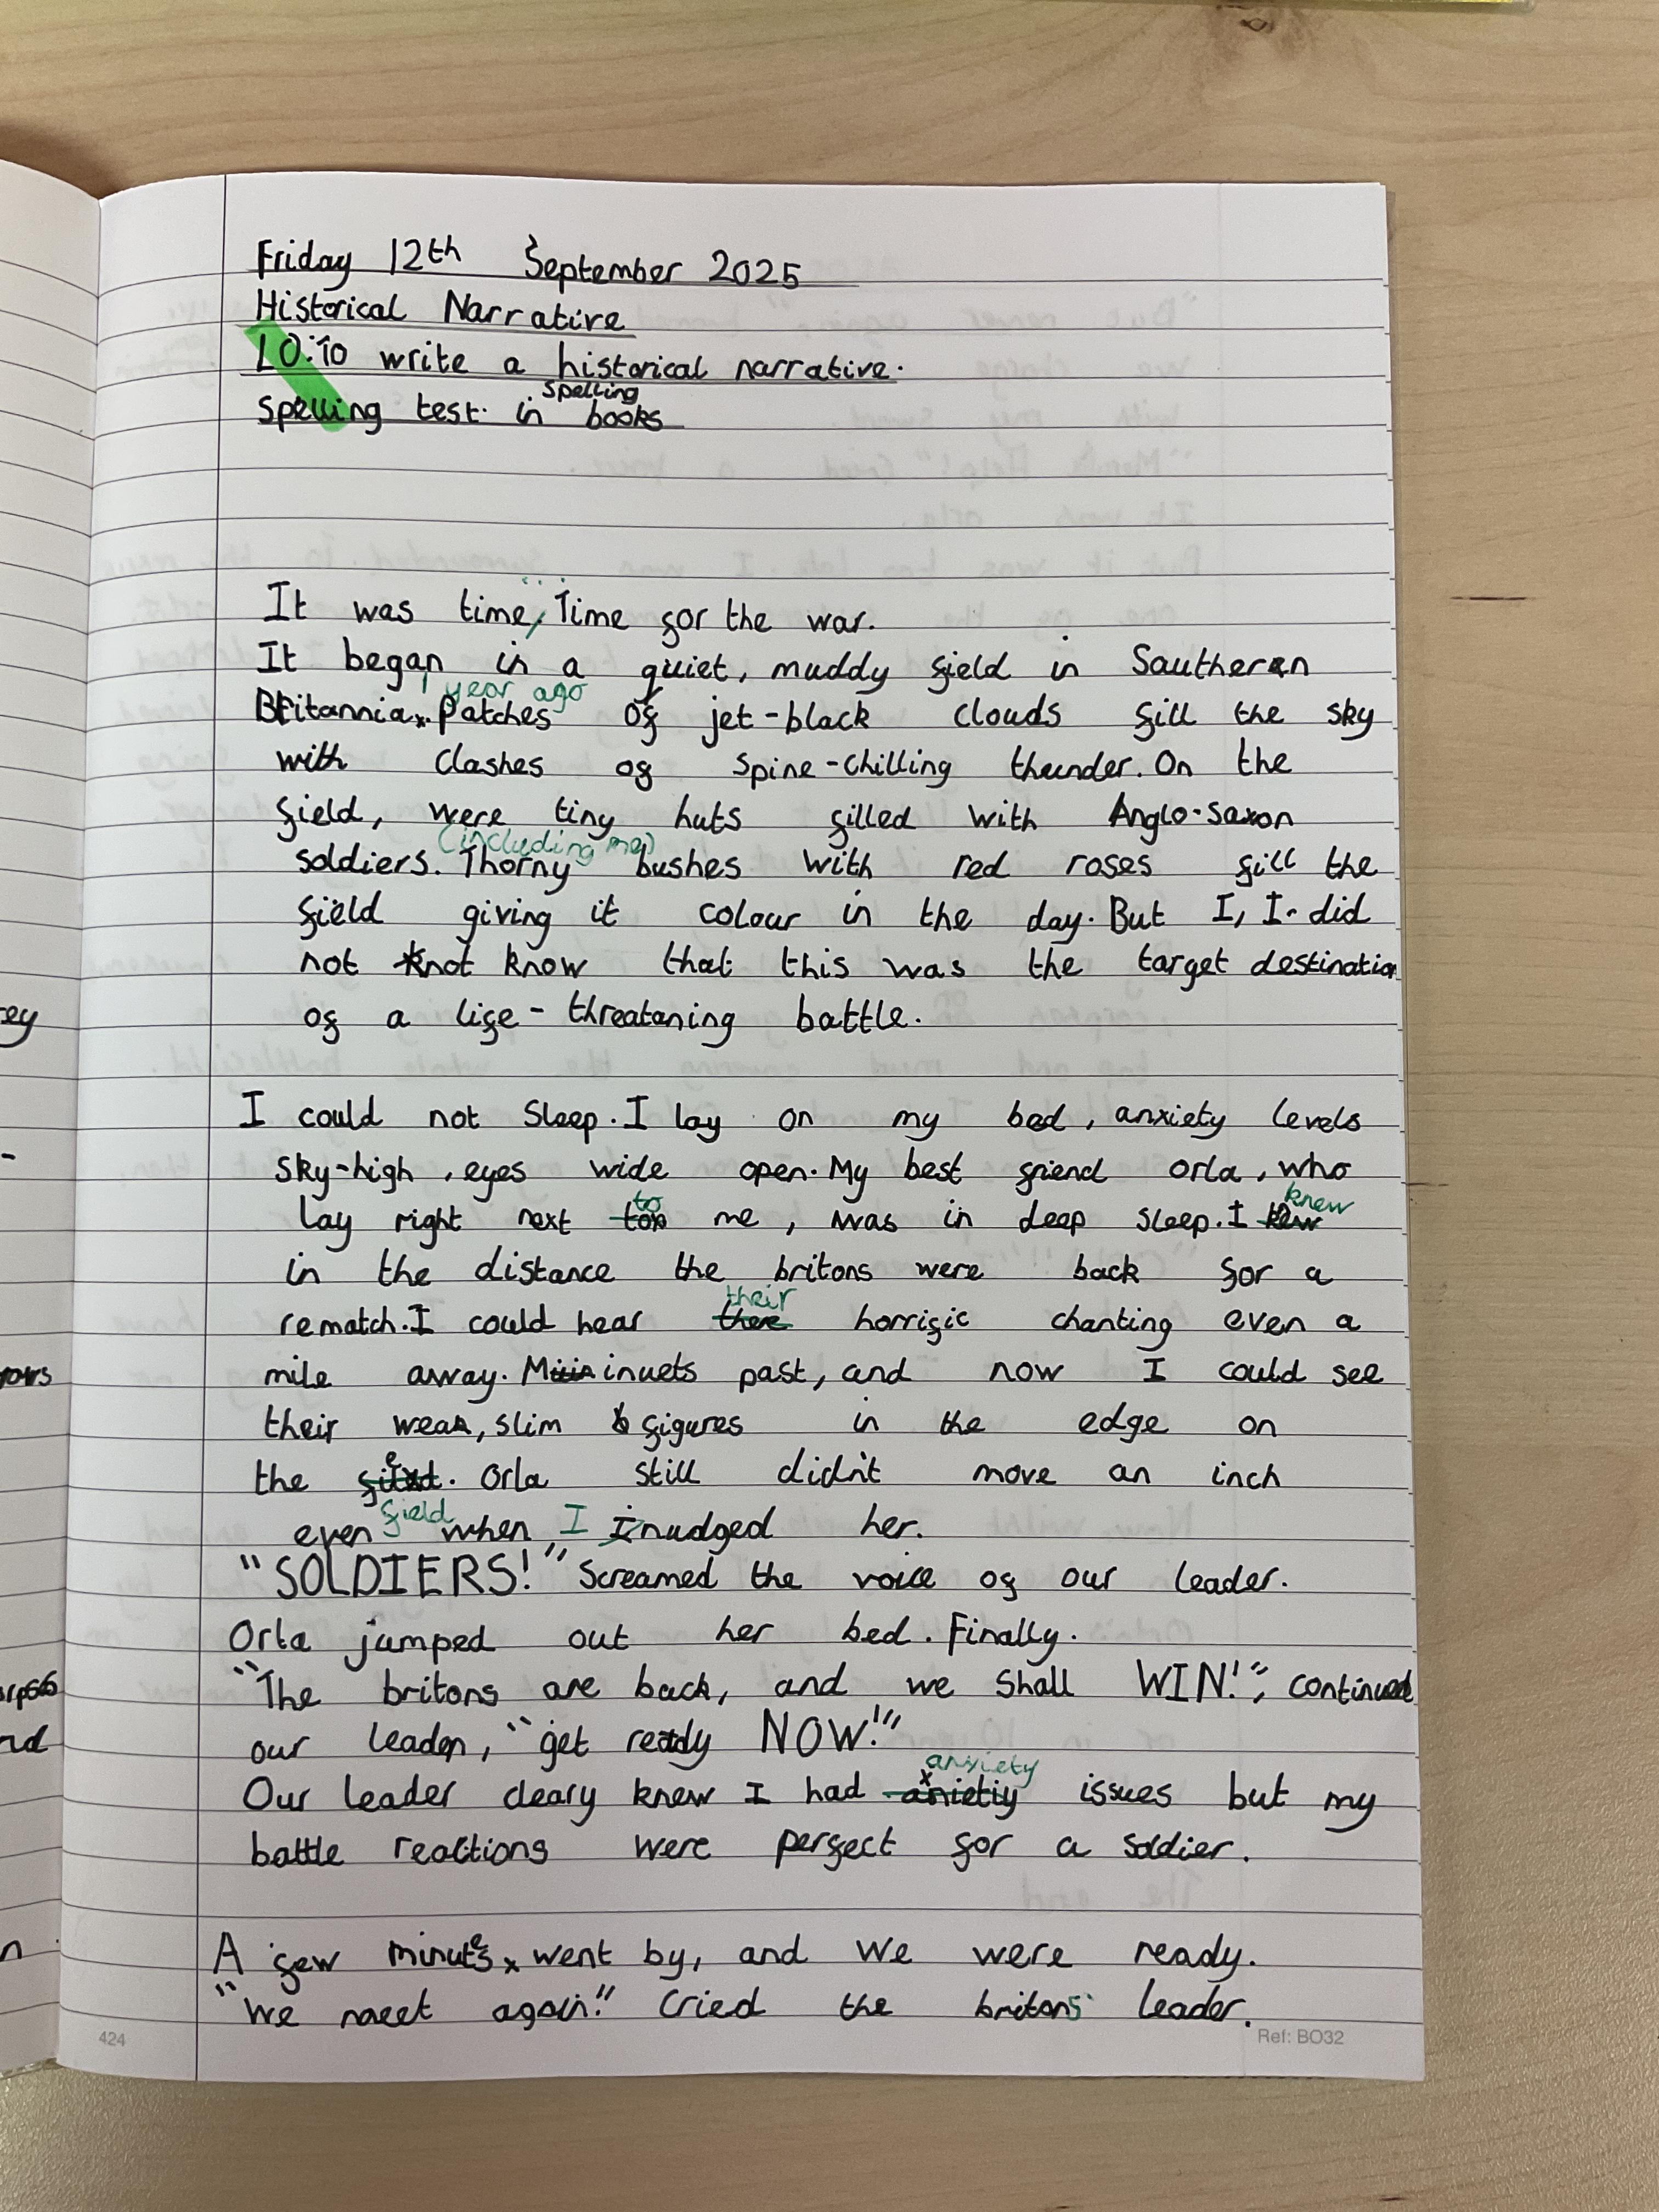 Friday 12th September 2025
Historical Narrative
LO: To write a historical narrative.
spelling
Spelling test. in books
...
It was time, Time for the war.
It began in a quiet, muddy field in Southern
1 year ago
Britannia. Patches of jet-black clouds fill the sky
with clashes of spine-chilling thunder. On the
field, were tiny huts filled with Anglo-saxon
(including me)
soldiers. Thorny bushes with red roses fill the
field giving it colour in the day. But I, I did
not knot know that this was the target destination
of a life-threataning battle.
I could not sleep. I lay on my bed, anxiety levels
sky-high, eyes wide open. My best friend orla, who
to knew
lay right next too me, was in deep sleep. I kew
in the distance the britons were back for a
their
rematch. I could hear there horrific chanting even a
mile away. Minuets past, and now I could see
their weak, slim figures in the edge on
the . Orla still didn't move an inch
field
even when I I nudged her.
"SOLDIERS!" Screamed the voice of our leader.
Orla jumped out her bed. Finally.
"The britons are back, and we shall WIN!", continued
our leader, "get ready NOW!"
anxiety
Our leader cleary knew I had anietiy issues but my
battle reactions were perfect for a soldier.
A few minutes went by, and we were ready.
"We meet again!" Cried the britons' leader.
424
Ref: BO32